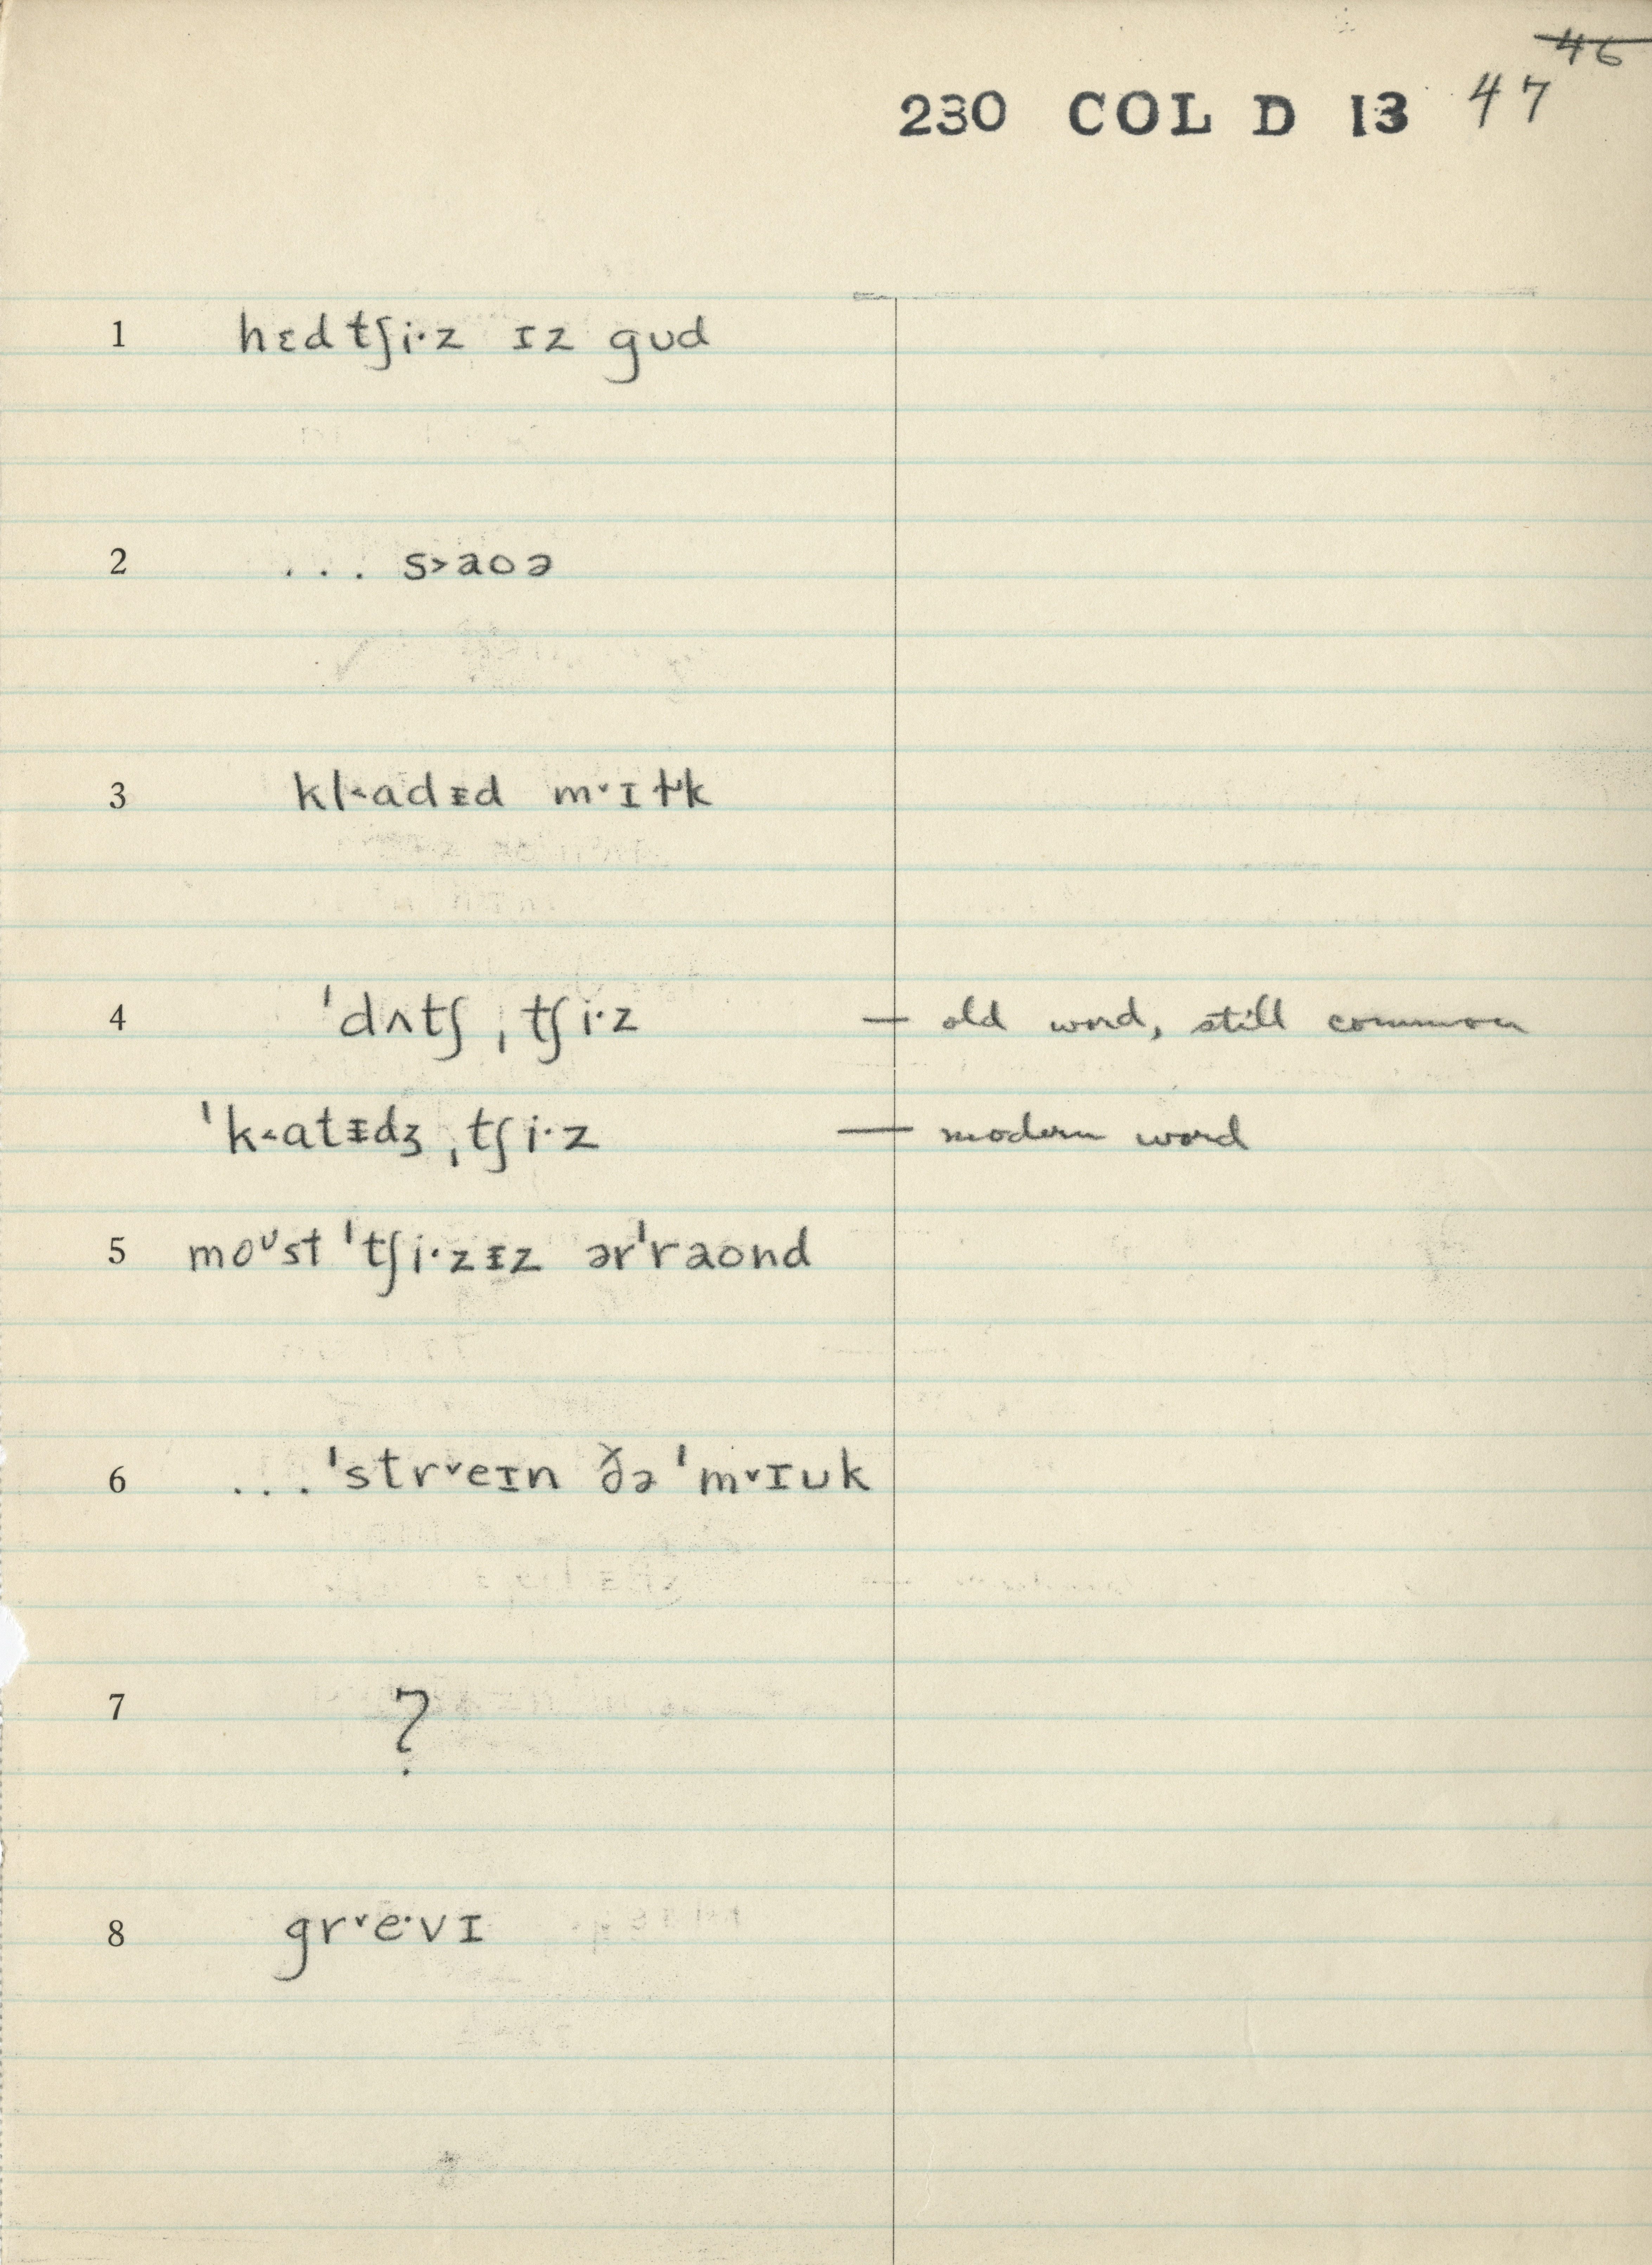 46
230 COL D 13 47
1 hɛdtʃi·z ɪz gʊd
2 ... s˃aoə
3 kl˂adɪ̵d m˅ɪɫk
4 ˈdʌtʃˌtʃi·z — old word, still common
ˈk˂atɪ̵dʒˌtʃi·z — modern word
5 moᶷst ˈtʃi·zɪ̵z ərˈraond
6 ... ˈstr˅eɪn ðə ˈm˅ɪʊk
7 ?
8 gr˅e·vɪ